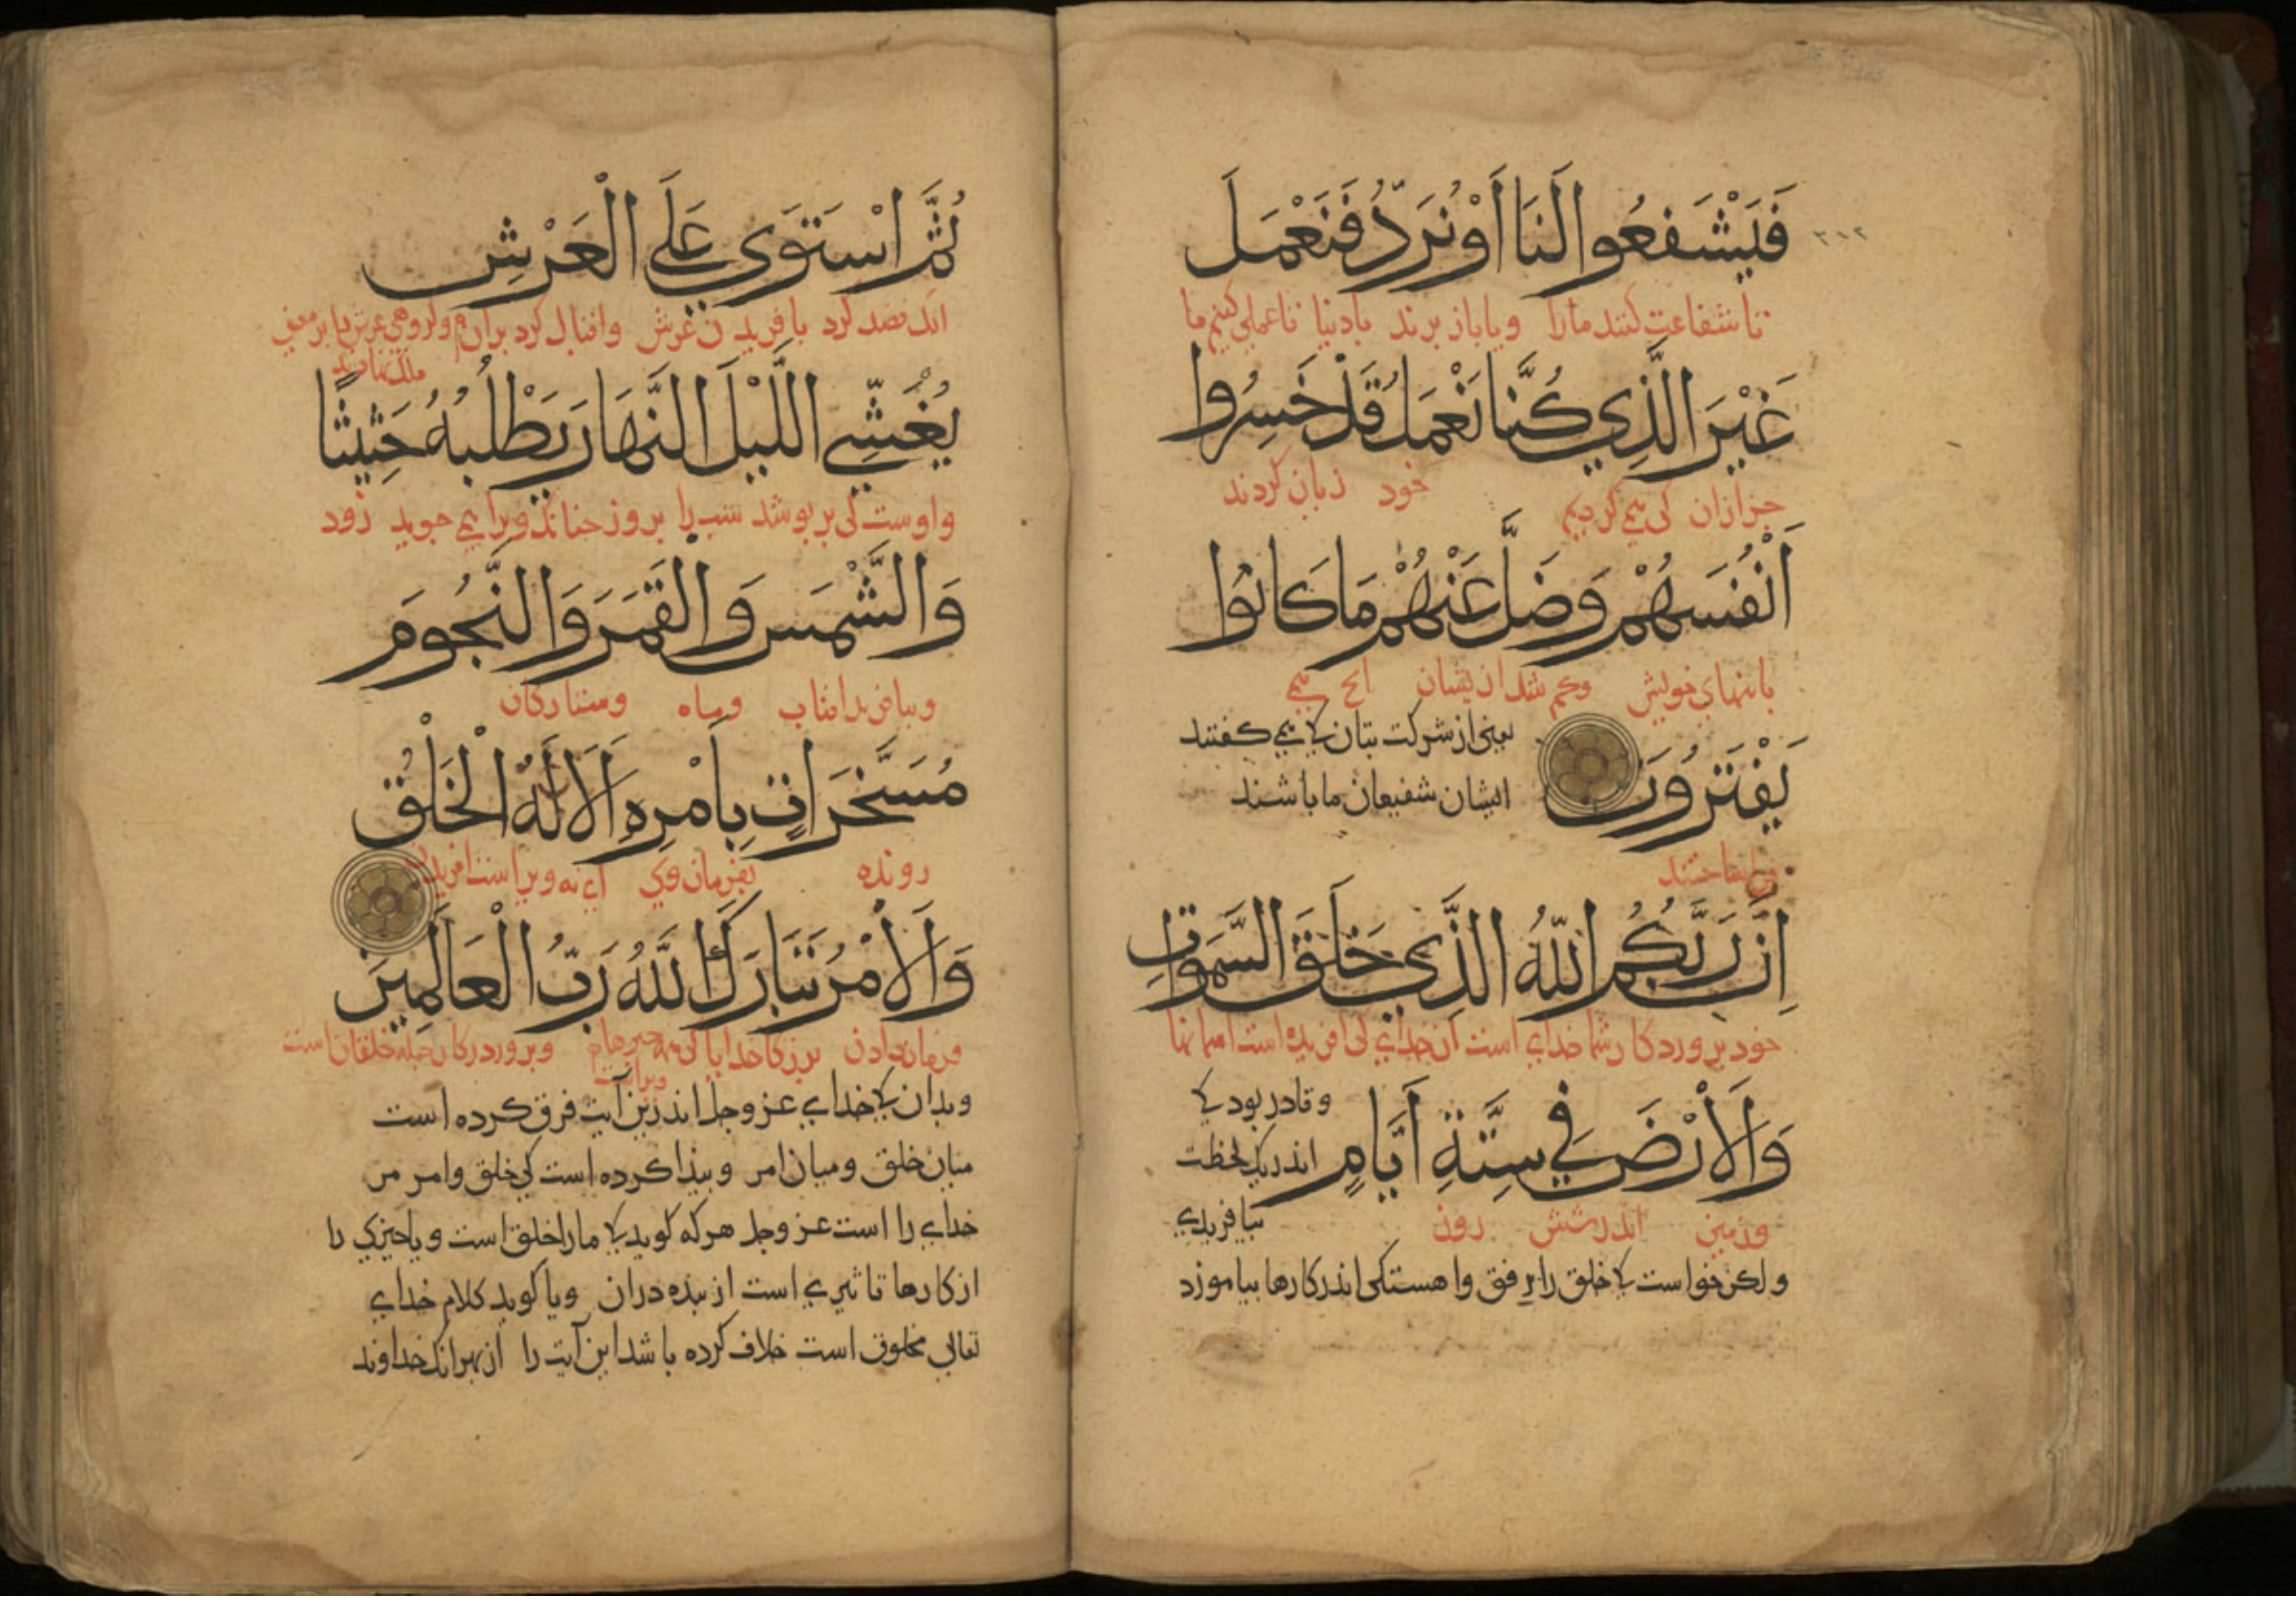 فَيَشْفَعُوا لَنَا أَوْ نُرَدُّ فَنَعْمَلَ
٣١٢
تا شفاعت کنند ما را و یا باز برند بادنیا تا عملی کنیم ما
غَيْرَ الَّذِي كُنَّا نَعْمَلُ قَدْ خَسِرُوا
جزازان کی می کردیم خود زیان کردند
اَنْفُسَهُمْ وَضَلَّ عَنْهُمْ مَا كَانُوا
باتنهای خویش و کم شد ازیشان انج می
يَفْتَرُونَ
یعنی از شرکت بتان که می کفتند
ایشان شفیعان ما باشند
فرابافتند
اِنَّ رَبَّكُمُ اللّٰهُ الَّذِي خَلَقَ السَّمَوَاتِ
خود پروردکار شما خدای است ان خدای کی افریده است اسمانها
وَالْاَرْضَ فِي سِتَّةِ اَيَّامٍ
و قادر بود که
اندر یک لحظت
بیافریدی
وزمین اندر شش روز
ولکن خواست که خلق را برفق واهستکی اندر کارها بیاموزد
ثُمَّ اسْتَوَى عَلَى الْعَرْشِ
انک قصد کرد بافریدن عرش واقبال کرد بران
يُغْشِي اللَّيْلَ النَّهَارَ يَطْلُبُهُ حَثِيثًا
واوست کی بربوشد شب را بروز جنانک ویرا می جوید زود
وَالشَّمْسَ وَالْقَمَرَ وَالنُّجُومَ
وبیافرید افتاب وماه وستارکان
مُسَخَّرَاتٍ بِاَمْرِهِ اَلَا لَهُ الْخَلْقُ
رونده بفرمان وی ای نه ویراست افریدن
وَالْاَمْرُ تَبَارَكَ اللّٰهُ رَبُّ الْعَالَمِينَ
وفرمان دادن بزرکا خدایا کی وپروردکار جمله خلقان است
وبدان که خدای عز وجل اندرین آیت فرق کرده است
میان خلق ومیان امر وپیدا کرده است کی خلق وامر مر
خدای را است عز وجل هر که کوید که ما را خلق است ویا چیزی را
از کارها تاثیری است از بنده دران ویا کوید کلام خدای
تعالی مخلوق است خلاف کرده باشد این آیت را از بهر انک خداوند